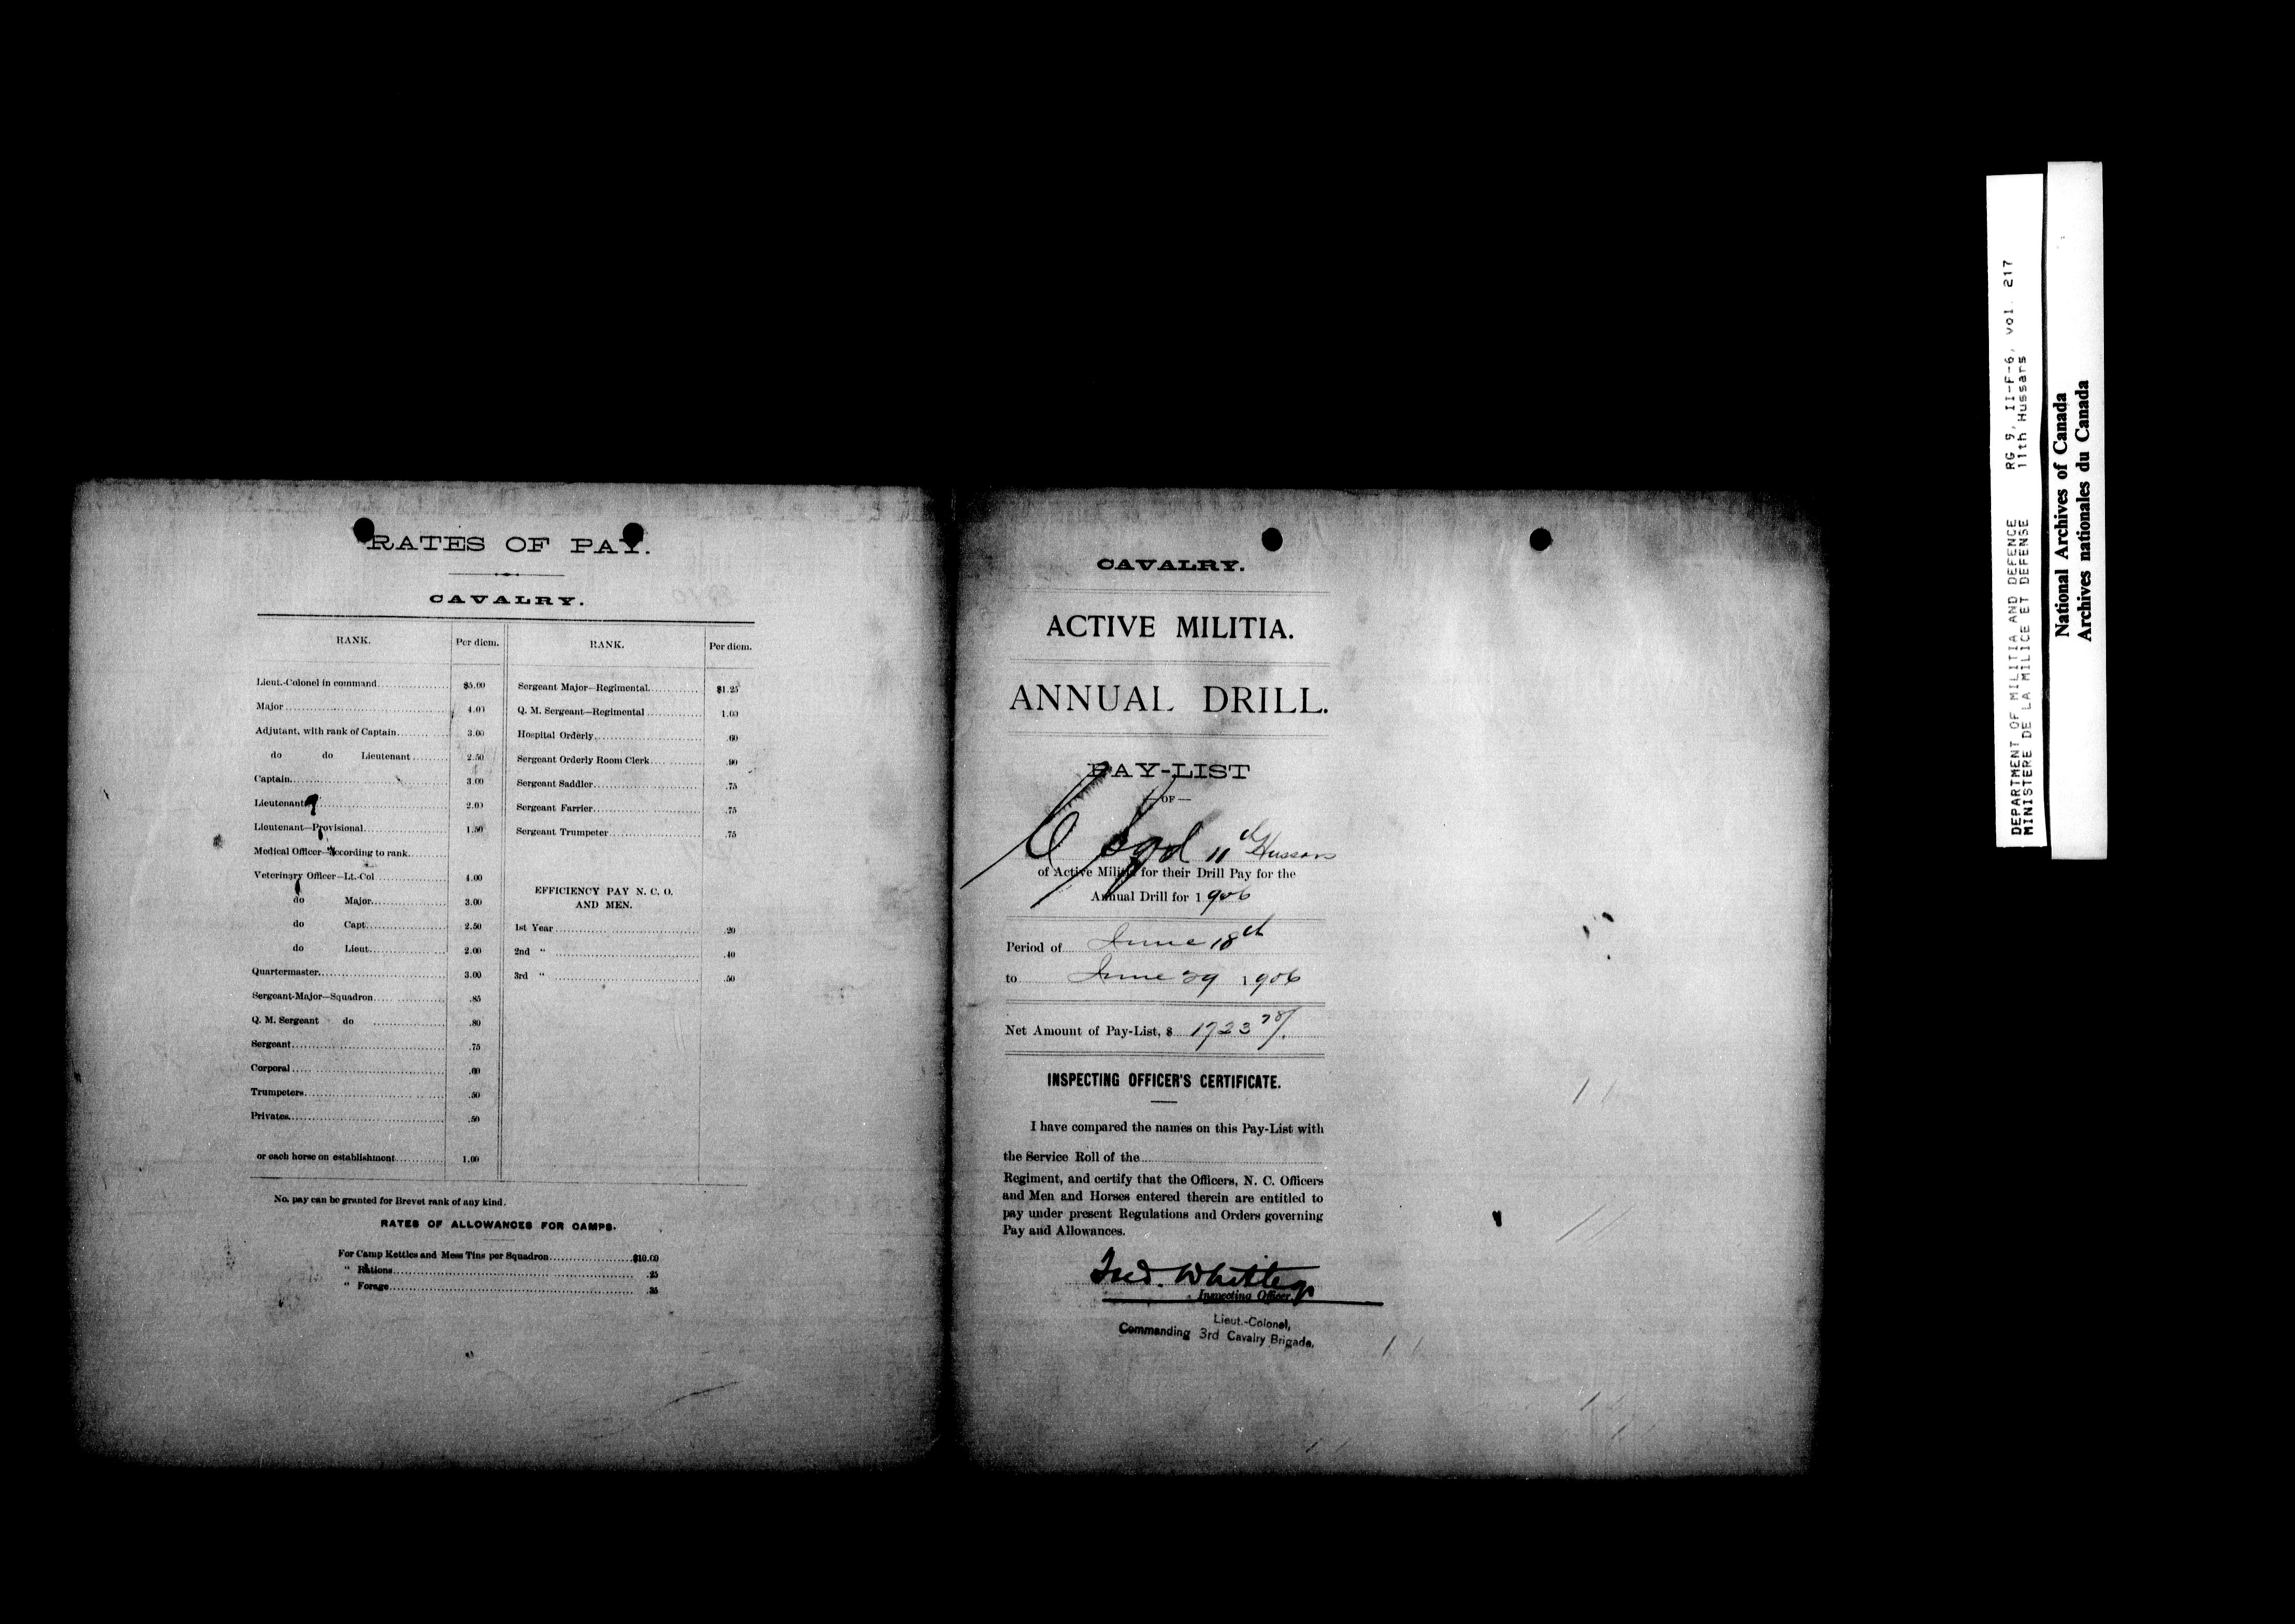 RATES OF PAY.
CAVALRY.
RANK. Per diem.
Lieut.-Colonel in command $5.00
Major 4.00
Adjutant, with rank of Captain 3.00
do do Lieutenant 2.50
Captain 3.00
Lieutenant 2.00
Lieutenant—Provisional 1.50
Medical Officer—according to rank
Veterinary Officer—Lt.-Col 4.00
do Major 3.00
do Capt. 2.50
do Lieut. 2.00
Quartermaster 3.00
Sergeant-Major—Squadron .85
Q. M. Sergeant do .80
Sergeant .75
Corporal .60
Trumpeters .50
Privates .50
or each horse on establishment 1.00
RANK. Per diem.
Sergeant Major—Regimental $1.25
Q. M. Sergeant—Regimental 1.00
Hospital Orderly .60
Sergeant Orderly Room Clerk .90
Sergeant Saddler .75
Sergeant Farrier .75
Sergeant Trumpeter .75
EFFICIENCY PAY N. C. O.
AND MEN.
1st Year .20
2nd " .40
3rd " .50
No. pay can be granted for Brevet rank of any kind.
RATES OF ALLOWANCES FOR CAMPS.
For Camp Kettles and Mess Tins per Squadron $10.00
" Rations .25
" Forage .25
CAVALRY.
ACTIVE MILITIA.
ANNUAL DRILL.
PAY-LIST
—OF—
C Sqd 11th Hussars
of Active Militia for their Drill Pay for the
Annual Drill for 1906
Period of June 18th
to June 29 1906
Net Amount of Pay-List, $ 1723 78/
INSPECTING OFFICER'S CERTIFICATE.
I have compared the names on this Pay-List with
the Service Roll of the
Regiment, and certify that the Officers, N. C. Officers
and Men and Horses entered therein are entitled to
pay under present Regulations and Orders governing
Pay and Allowances.
Fred. Whitley
Inspecting Officer.
Lieut.-Colonel,
Commanding 3rd Cavalry Brigade.
DEPARTMENT OF MILITIA AND DEFENCE RG 9, II-F-6, vol. 217
MINISTERE DE LA MILICE ET DEFENSE 11th Hussars
National Archives of Canada
Archives nationales du Canada